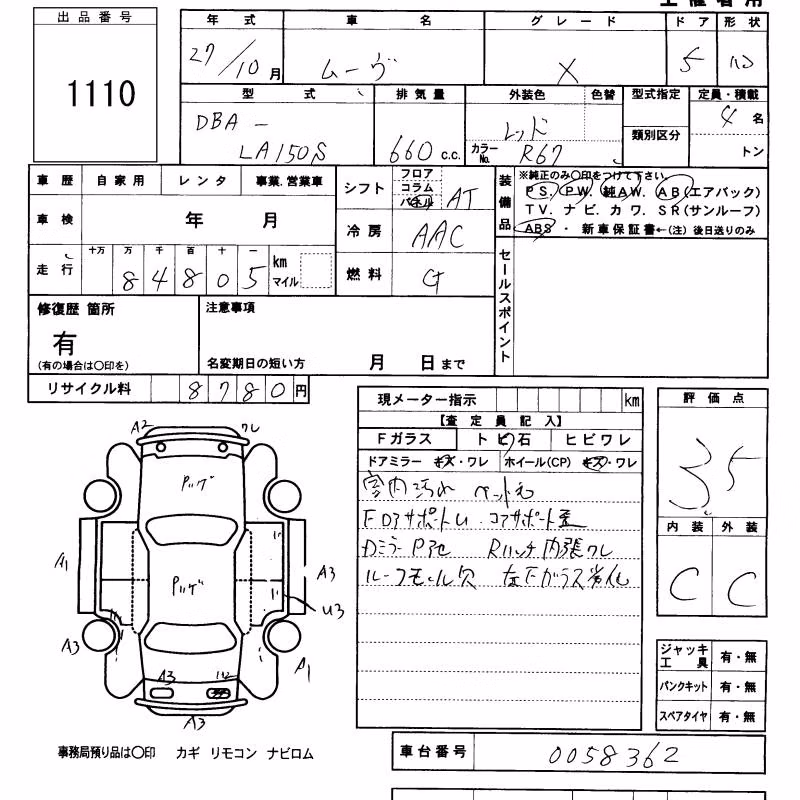 出品番号
1110
年式 車名 グレード ドア 形状
27/10月 ムーヴ X 5 HB
型式 排気量 外装色 色替 型式指定 定員・積載
DBA- LA150S 660 c.c. レッド 類別区分 4名
カラーNo. R67 トン
車歴 自家用 レンタ 事業.営業車
シフト フロア コラム パネル AT
装備品 ※純正のみ○印をつけて下さい
PS. PW. 純AW. AB(エアバック)
TV. ナビ. カワ. SR(サンルーフ)
ABS・新車保証書←(注)後日送りのみ
車検 年 月
冷房 AAC
走行 十万 万 千 百 十 一
84805 km マイル
燃料 G
セールスポイント
修復歴 箇所
有
(有の場合は○印を)
注意事項
名変期日の短い方 月 日まで
リサイクル料 8780円
現メーター指示 km
【査定員記入】
Fガラス トビ石 ヒビワレ
ドアミラー キズ・ワレ ホイール(CP) キズ・ワレ
室内汚れ
コアサポート歪
カミラー
内張ワレ
ルーフモール欠
評価点
3.5
内装 外装
C C
ジャッキ工具 有・無
パンクキット 有・無
スペアタイヤ 有・無
A2 ワレ
A1
A3
U3
A3
A1
A3
A3
事務局預り品は○印 カギ リモコン ナビロム
車台番号 0058362